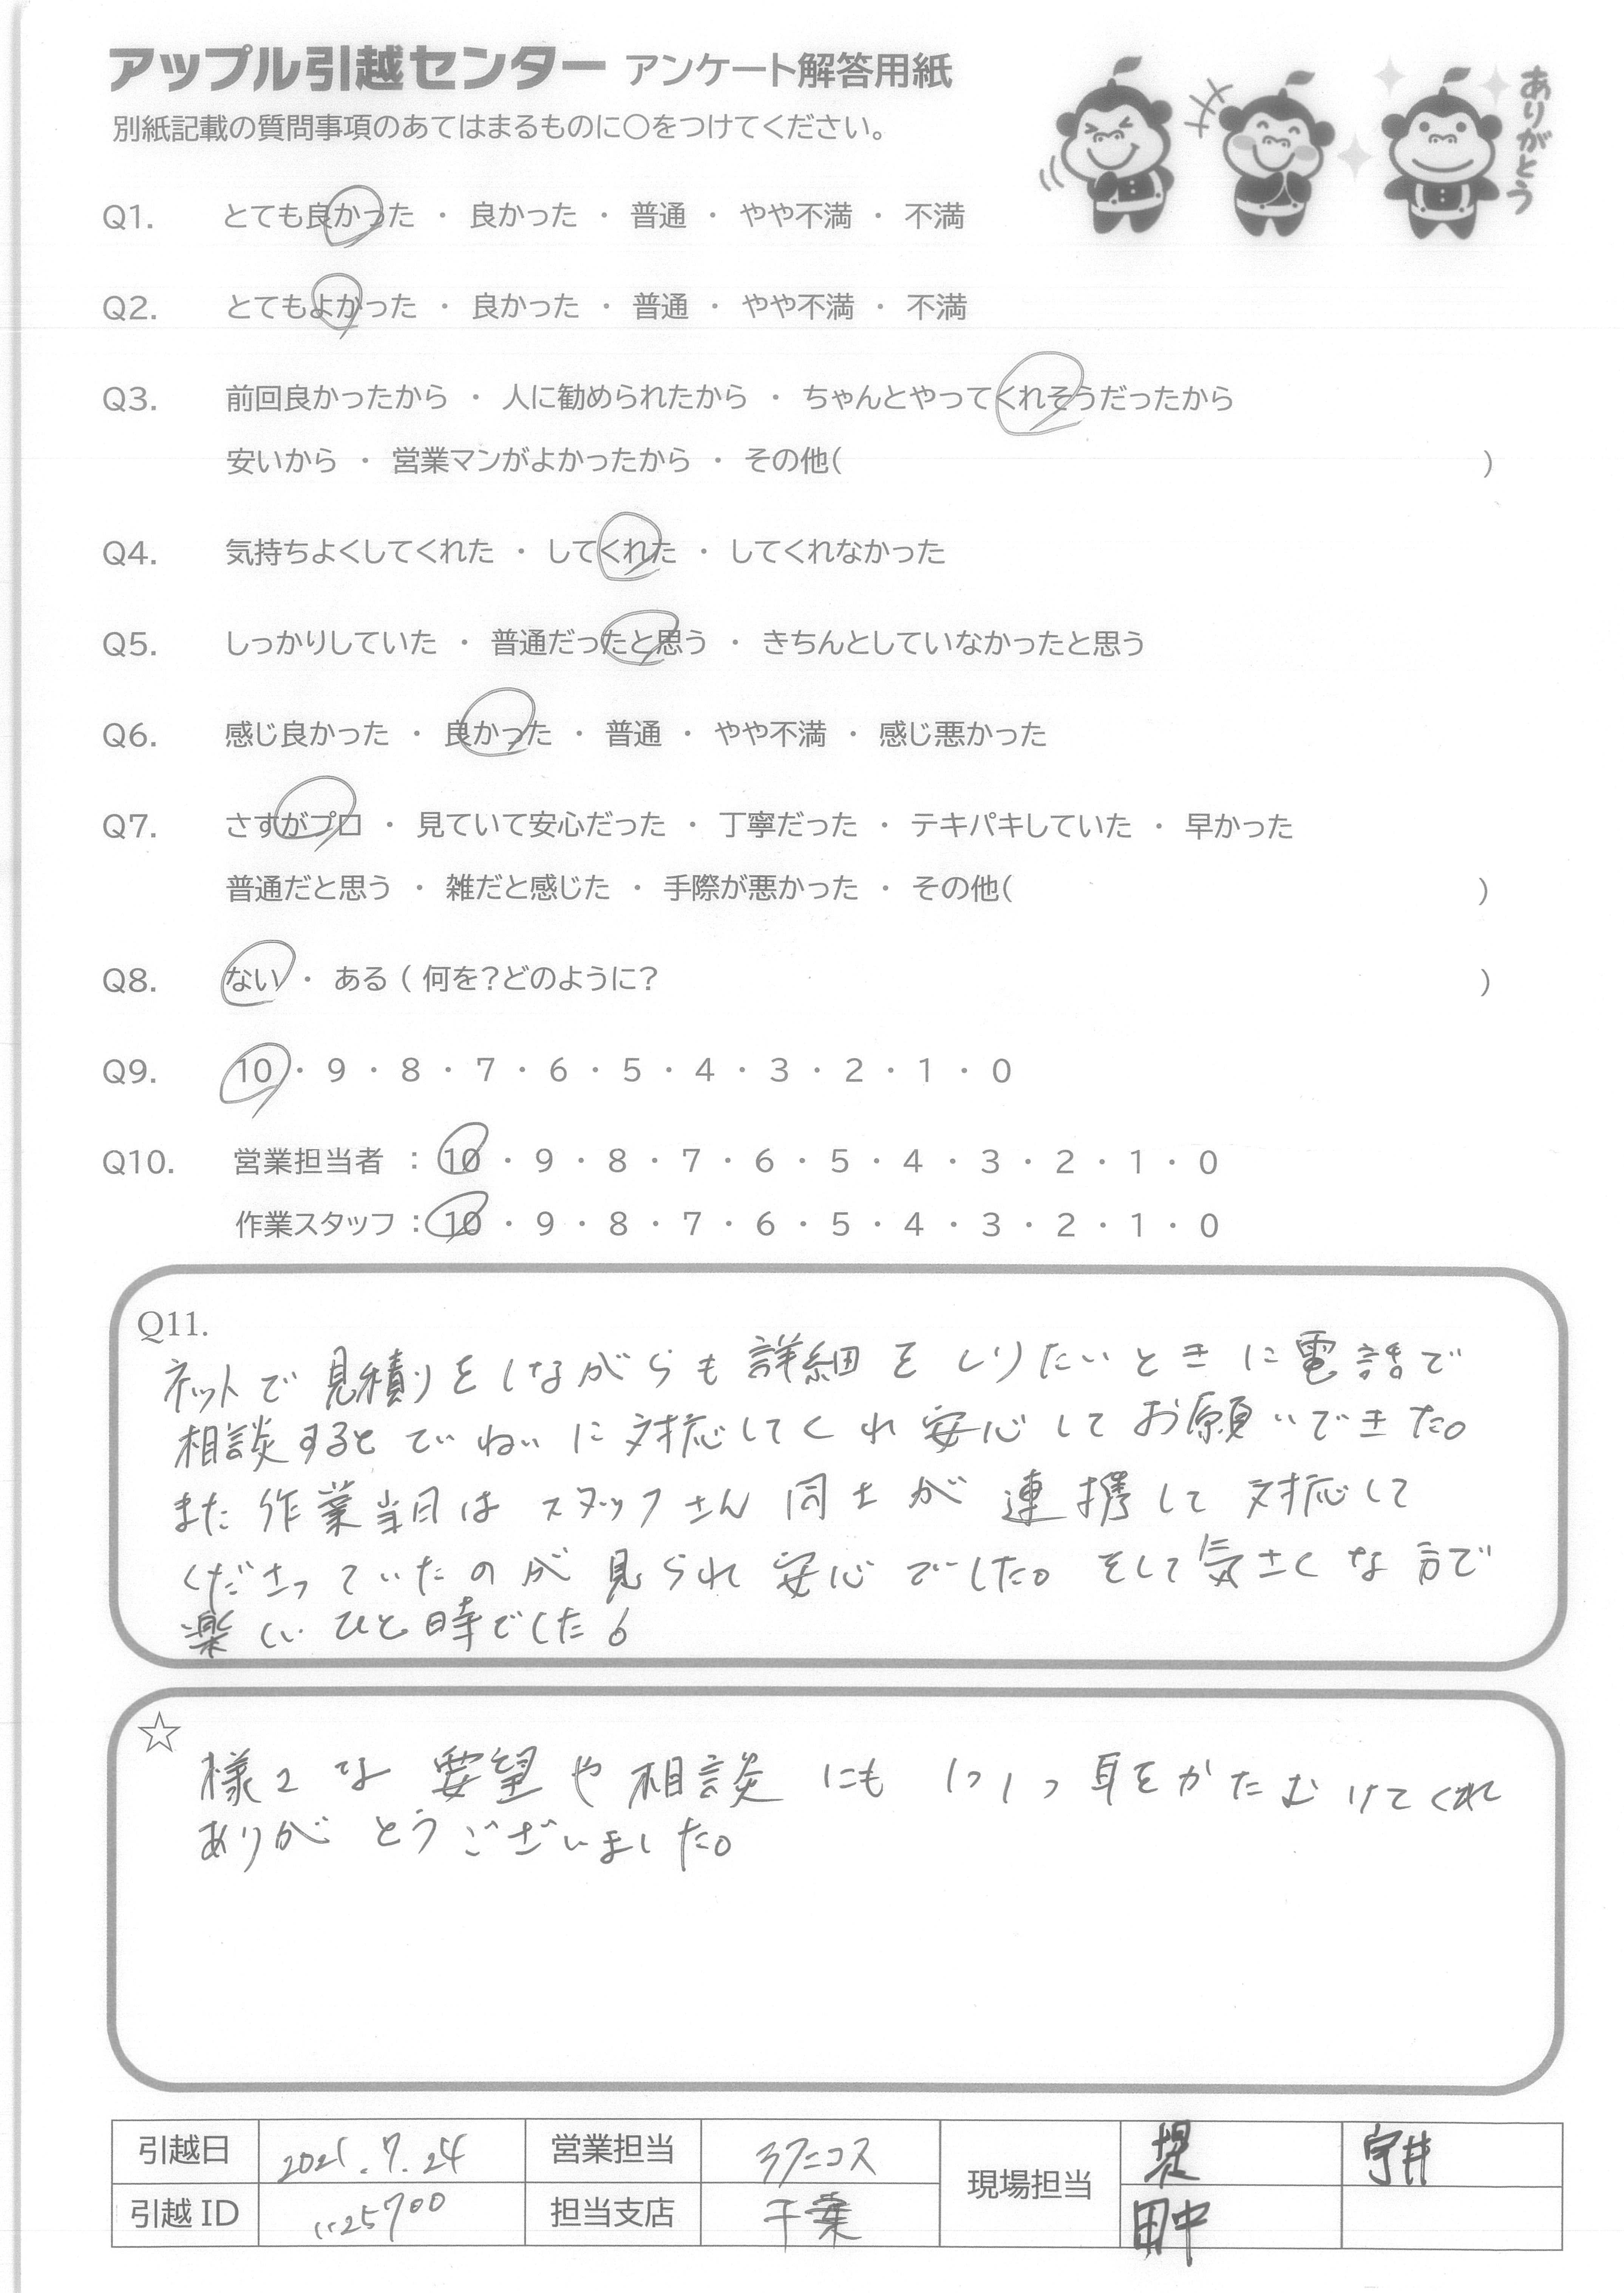 アップル引越センター アンケート解答用紙
別紙記載の質問事項のあてはまるものに○をつけてください。
ありがとう
Q1. とても良かった ・ 良かった ・ 普通 ・ やや不満 ・ 不満
Q2. とてもよかった ・ 良かった ・ 普通 ・ やや不満 ・ 不満
Q3. 前回良かったから ・ 人に勧められたから ・ ちゃんとやってくれそうだったから
安いから ・ 営業マンがよかったから ・ その他( )
Q4. 気持ちよくしてくれた ・ してくれた ・ してくれなかった
Q5. しっかりしていた ・ 普通だったと思う ・ きちんとしていなかったと思う
Q6. 感じ良かった ・ 良かった ・ 普通 ・ やや不満 ・ 感じ悪かった
Q7. さすがプロ ・ 見ていて安心だった ・ 丁寧だった ・ テキパキしていた ・ 早かった
普通だと思う ・ 雑だと感じた ・ 手際が悪かった ・ その他( )
Q8. ない ・ ある ( 何を?どのように? )
Q9. 10 ・ 9 ・ 8 ・ 7 ・ 6 ・ 5 ・ 4 ・ 3 ・ 2 ・ 1 ・ 0
Q10. 営業担当者 : 10 ・ 9 ・ 8 ・ 7 ・ 6 ・ 5 ・ 4 ・ 3 ・ 2 ・ 1 ・ 0
作業スタッフ : 10 ・ 9 ・ 8 ・ 7 ・ 6 ・ 5 ・ 4 ・ 3 ・ 2 ・ 1 ・ 0
Q11.
ネットで見積りをしながらも詳細をしりたいときに電話で
相談するとていねいに対応してくれ安心してお願いできた。
また作業当日はスタッフさん同士が連携して対応して
くださっていたのが見られ安心でした。そして気さくな方で
楽しいひと時でした。
☆
様々な要望や相談にも1つ1つ耳をかたむけてくれ
ありがとうございました。
引越日 2025.7.24 営業担当 現場担当 堤 宇井
引越ID 担当支店 千葉 田中